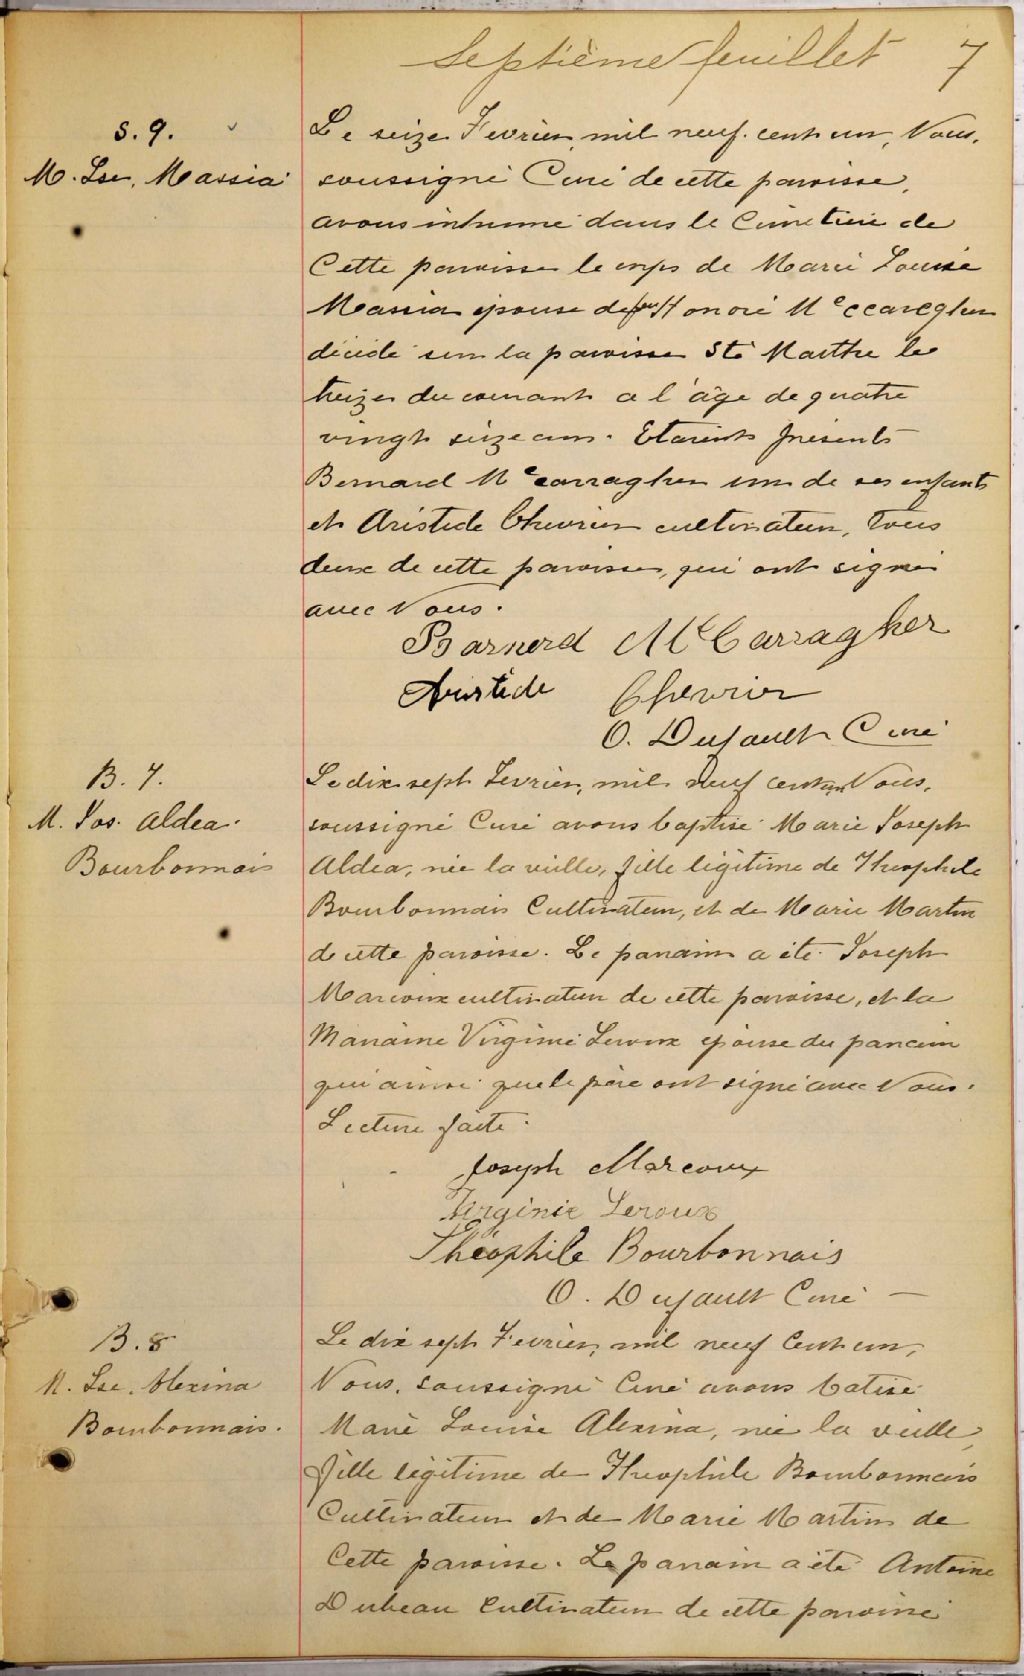 Septième feuillet 7
S. 9.
M. Lse. Massia
Le seize Fevrier, mil neuf cent un, Nous,
soussigné Curé de cette paroisse,
avons inhumé dans le Cimetière de
Cette paroisse le corps de Marie Louise
Massia épouse de feu Honoré
décédé sur la paroisse Ste Marthe le
treize du courant a l'âge de quatre
vingt seize ans. Etaient présents
Bernard Mc Carragher un de ses enfants
et Aristide Chevrier cultivateur, tous
deux de cette paroisse, qui ont signé
avec Nous.
Barnerd McCarragher
Aristide Chevrier
O. Dufault Curé
B. 7.
M. Jos. Aldea.
Bourbonnais
Le dix sept Fevrier, mil neuf cent un Nous,
soussigné Curé avons baptisé Marie Joseph
Aldea, née la veille, fille légitime de Theophile
Bourbonnais Cultivateur, et de Marie Martin
de cette paroisse. Le parrain a été Joseph
Marcoux cultivateur de cette paroisse, et la
Marraine Virginie Leroux épouse du parrain
qui ainsi que le père ont signé avec Nous.
Lecture faite.
Joseph Marcoux
Virginie Leroux
Théophile Bourbonnais
O. Dufault Curé —
B. 8
M. Lse. Alexina
Bourbonnais.
Le dix sept Fevrier, mil neuf Cent un,
Nous, soussigné Curé avons batisé
Marie Louise Alexina, née la veille,
fille légitime de Theophile Bourbonnais
Cultivateur et de Marie Martin de
Cette paroisse. Le parrain a été Antoine
Dubeau Cultivateur de cette paroisse